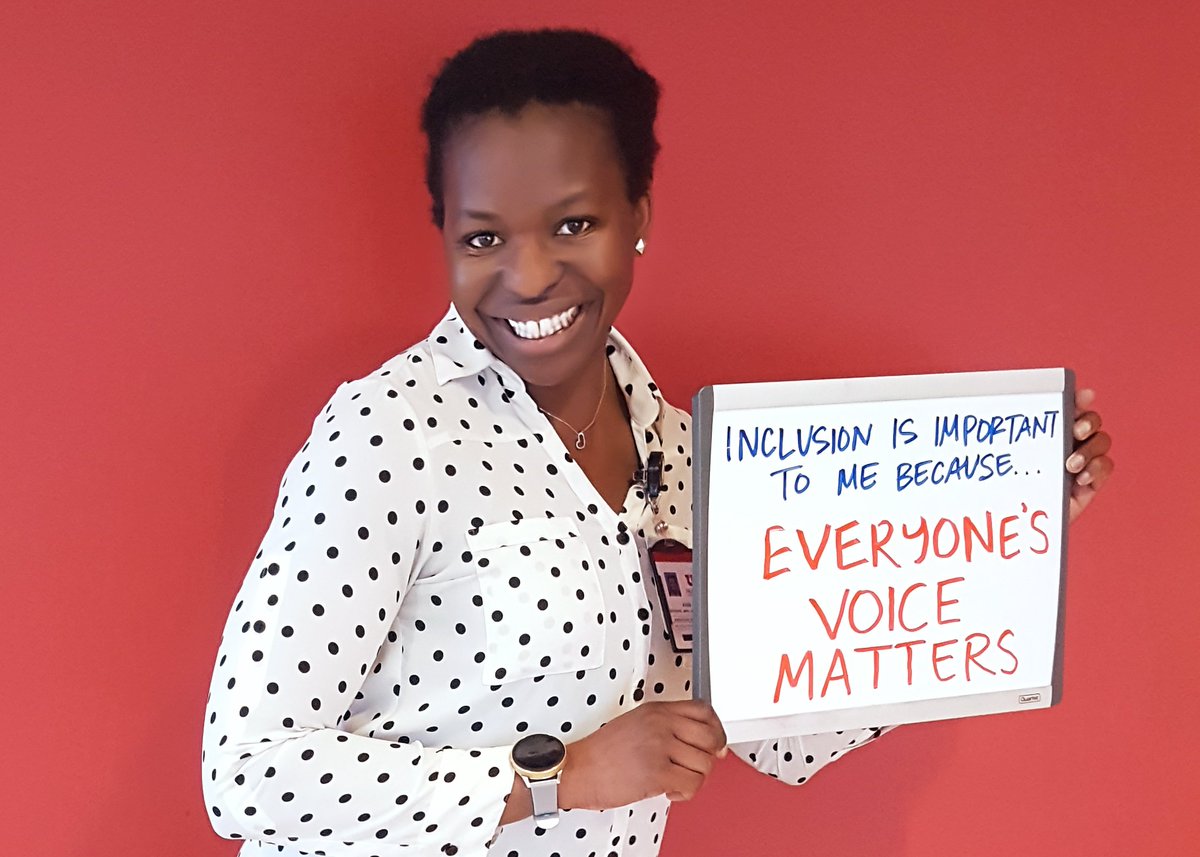 INCLUSION IS IMPORTANT
TO ME BECAUSE...
EVERYONE'S
VOICE
MATTERS
Quartet